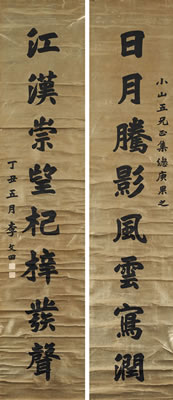 日月騰影風雲寫潤
小山五兄正集總庾果之
江漢崇望杞梓發聲
丁丑五月李文田